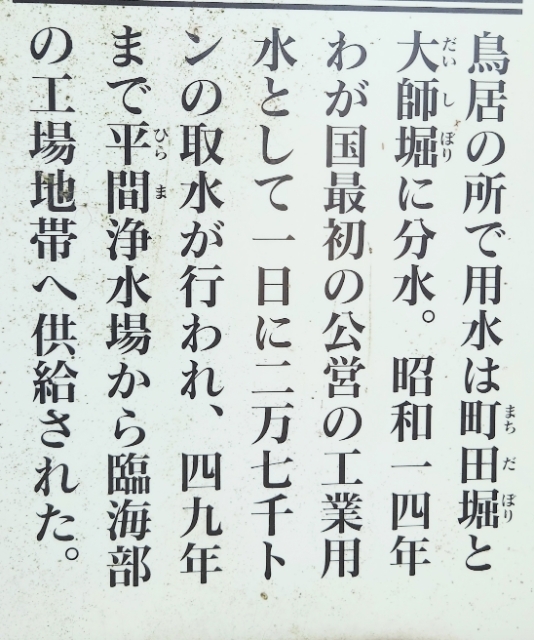 鳥居の所で用水は町田堀と
大師堀に分水。昭和一四年
わが国最初の公営の工業用
水として一日に二万七千ト
ンの取水が行われ、四九年
まで平間浄水場から臨海部
の工場地帯へ供給された。